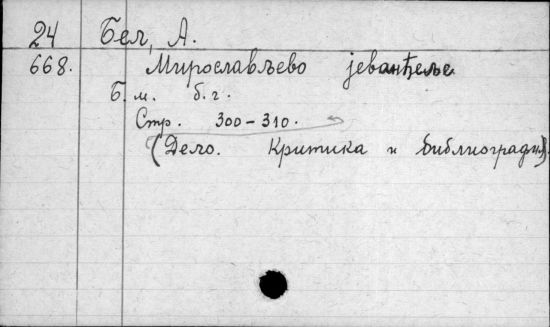 24 Бел, А.
668. Мирослављево јеванђеље
Б. м. б. г.
Стр. 300-310.
(Дело. Критика и библиографија).